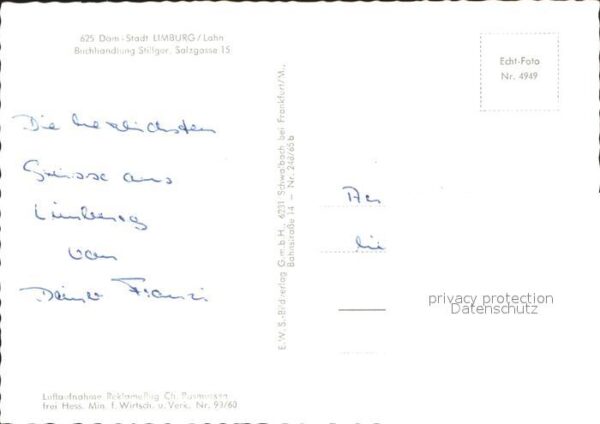 625 Dom-Stadt LIMBURG/Lahn
Buchhandlung Stillger, Salzgasse 15
Echt-Foto
Nr. 4949
Die herzlichsten
Grüsse aus
Limburg
von
Deiner Franzi
E.W.S.-Bildverlag G.m.b.H., 6231 Schwalbach bei Frankfurt/M.,
Bahnstraße 14 – Nr. 248/65b
An
privacy protection
Datenschutz
Luftaufnahme Reklameflug Ch. Rasmussen
frei Hess. Min. f. Wirtsch. u. Verk. Nr. 99/60